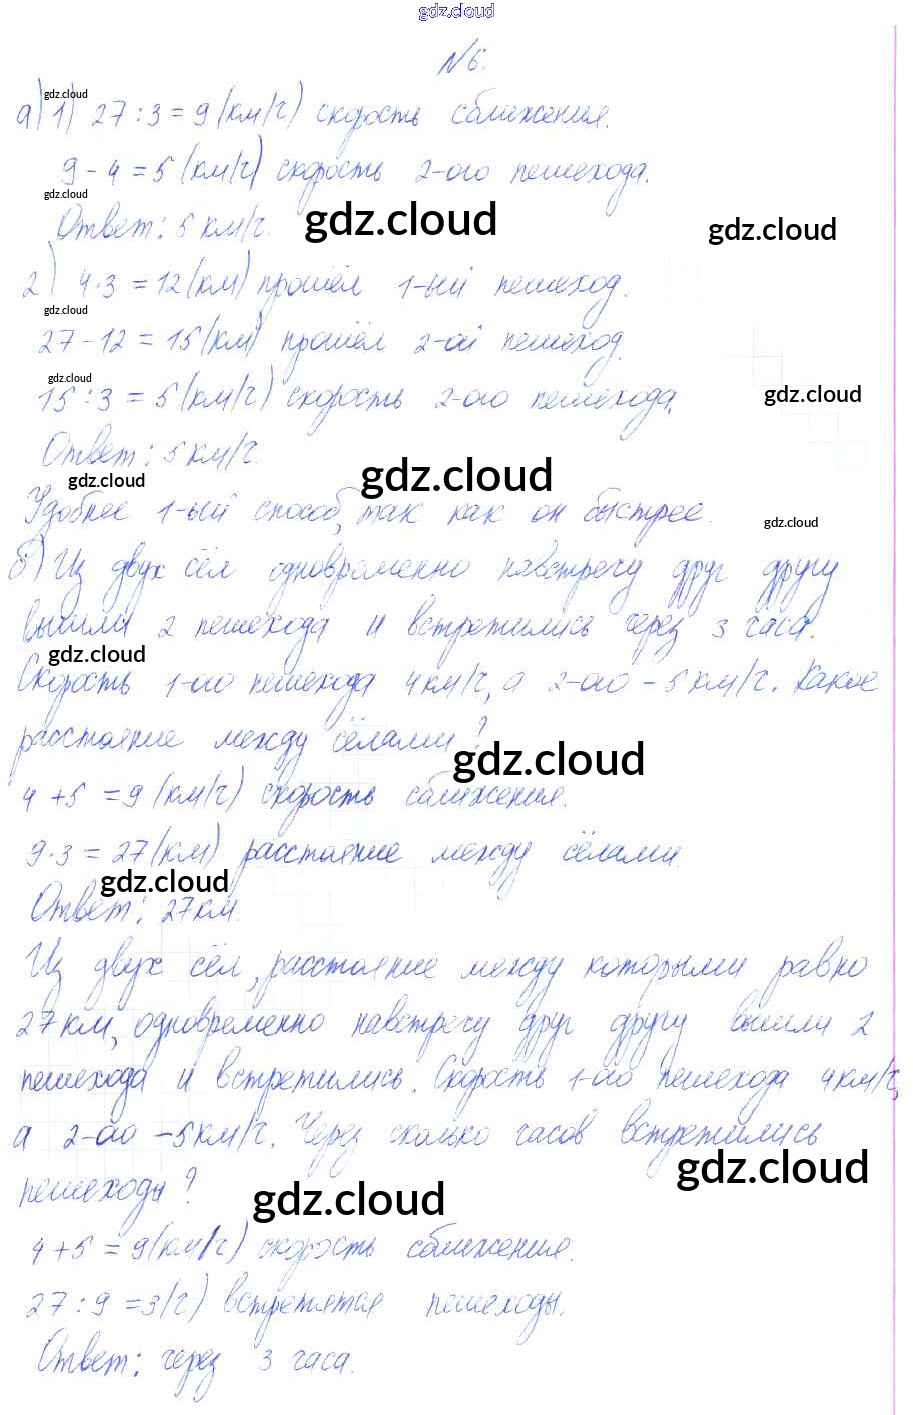 gdz.cloud
№6.
gdz.cloud
а) 1) 27 : 3 = 9 (км/ч) скорость сближения.
9 - 4 = 5 (км/ч) скорость 2-ого пешехода.
gdz.cloud
Ответ: 5 км/ч.
gdz.cloud
gdz.cloud
2) 4·3 = 12 (км) прошёл 1-ый пешеход.
gdz.cloud
27 - 12 = 15 (км) прошёл 2-ой пешеход.
gdz.cloud
15 : 3 = 5 (км/ч) скорость 2-ого пешехода.
gdz.cloud
Ответ: 5 км/ч.
gdz.cloud
gdz.cloud
Удобнее 1-ый способ, так как он быстрее.
gdz.cloud
б) Из двух сёл одновременно навстречу друг другу
вышли 2 пешехода и встретились через 3 часа.
gdz.cloud
Скорость 1-ого пешехода 4 км/ч, а 2-ого - 5 км/ч. Какое
расстояние между сёлами?
gdz.cloud
4 + 5 = 9 (км/ч) скорость сближения.
9·3 = 27 (км) расстояние между сёлами.
gdz.cloud
Ответ: 27 км.
Из двух сёл, расстояние между которыми равно
27 км, одновременно навстречу друг другу вышли 2
пешехода и встретились. Скорость 1-ого пешехода 4 км/ч,
а 2-ого - 5 км/ч. Через сколько часов встретились
gdz.cloud
пешеходы?
gdz.cloud
4 + 5 = 9 (км/ч) скорость сближения.
27 : 9 = 3 (ч) встретятся пешеходы.
Ответ: через 3 часа.